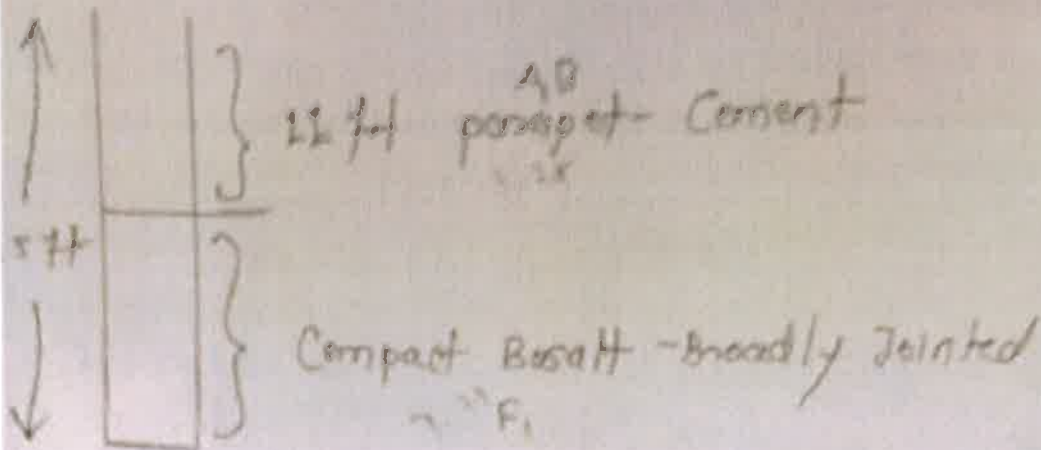 11 ft parapet - Cement
5 ft
Compact Basalt - Broadly Jointed